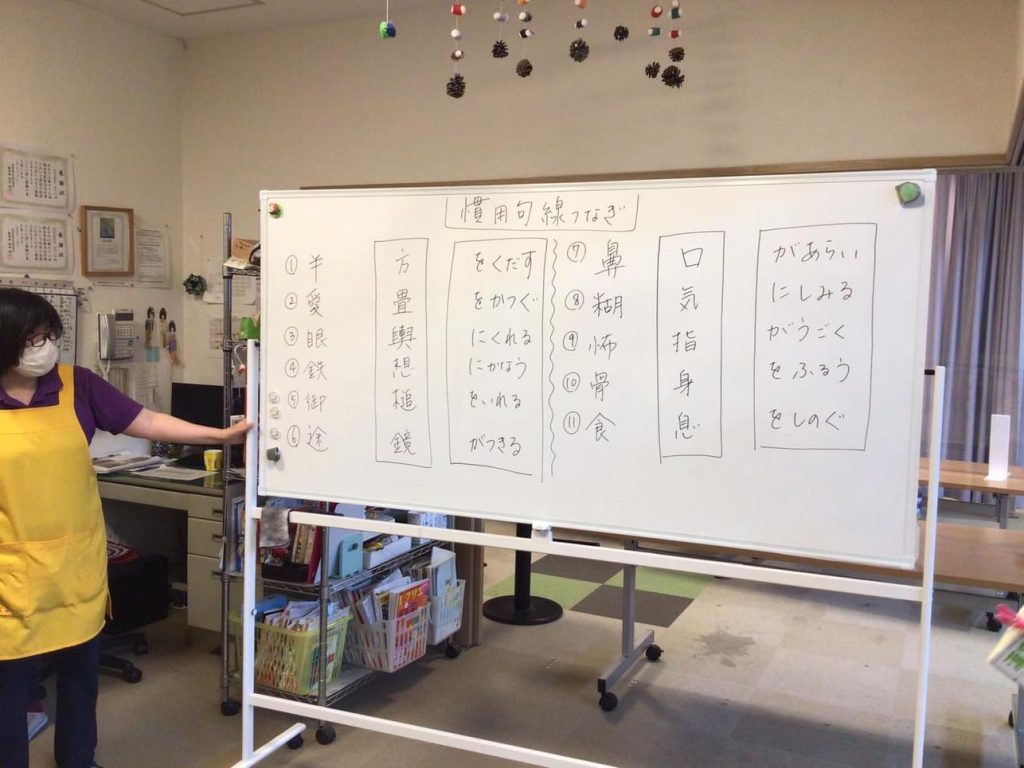 慣用句線つなぎ
① 半 方 をくだす
② 愛 畳 をかつぐ
③ 眼 輿 にくれる
④ 鉄 想 にかなう
⑤ 御 槌 をいれる
⑥ 途 鏡 がつきる
⑦ 鼻 口 があらい
⑧ 糊 気 にしみる
⑨ 怖 指 がうごく
⑩ 骨 身 をふるう
⑪ 食 息 をしのぐ